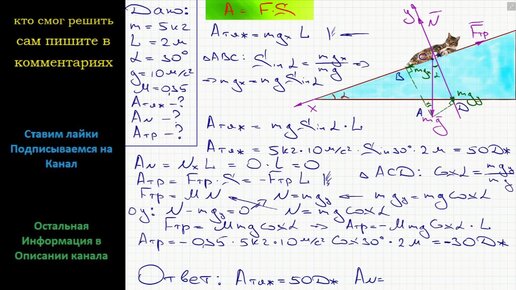 кто смог решить
сам пишите в
комментариях
Ставим лайки
Подписываемся на
Канал
Остальная
Информация в
Описании канала
Дано:
m = 5 кг
L = 2 м
α = 30°
g = 10 м/с²
M = 0,35
Aтяж - ?
AN - ?
Aтр - ?
A = F·S
Aтяж = mgx L
△ABC: Sinα = mgx/mg ⇒
⇒ mgx = mg Sinα
Aтяж = mg Sinα · L
Aтяж = 5кг · 10 м/с² · Sin30° · 2м = 50Дж
AN = Nx L = 0·L = 0
△ACD: Cosα = mgy/mg
Aтр = Fтр · S = -Fтр L
Fтр = MN
N = mgy
mgy = mg Cosα
oy: N - mgy = 0
N = mg Cosα
Fтр = Mmg Cosα ⇒ Aтр = -Mmg Cosα · L
Aтр = -0,35 · 5кг · 10 м/с² Cos30° · 2м = -30Дж
Ответ: Aтяж = 50Дж AN =
y
N
Fтр
C
B
mgx
A
D
mgy
mg
x
α